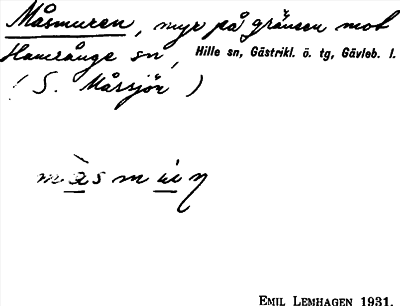 Måsmuren, myr på gränsen mot
Hamrånge sn, Hille sn, Gästrikl. ö. tg, Gävleb. l.
(S. Mårsjön)
EMIL LEMHAGEN 1931.